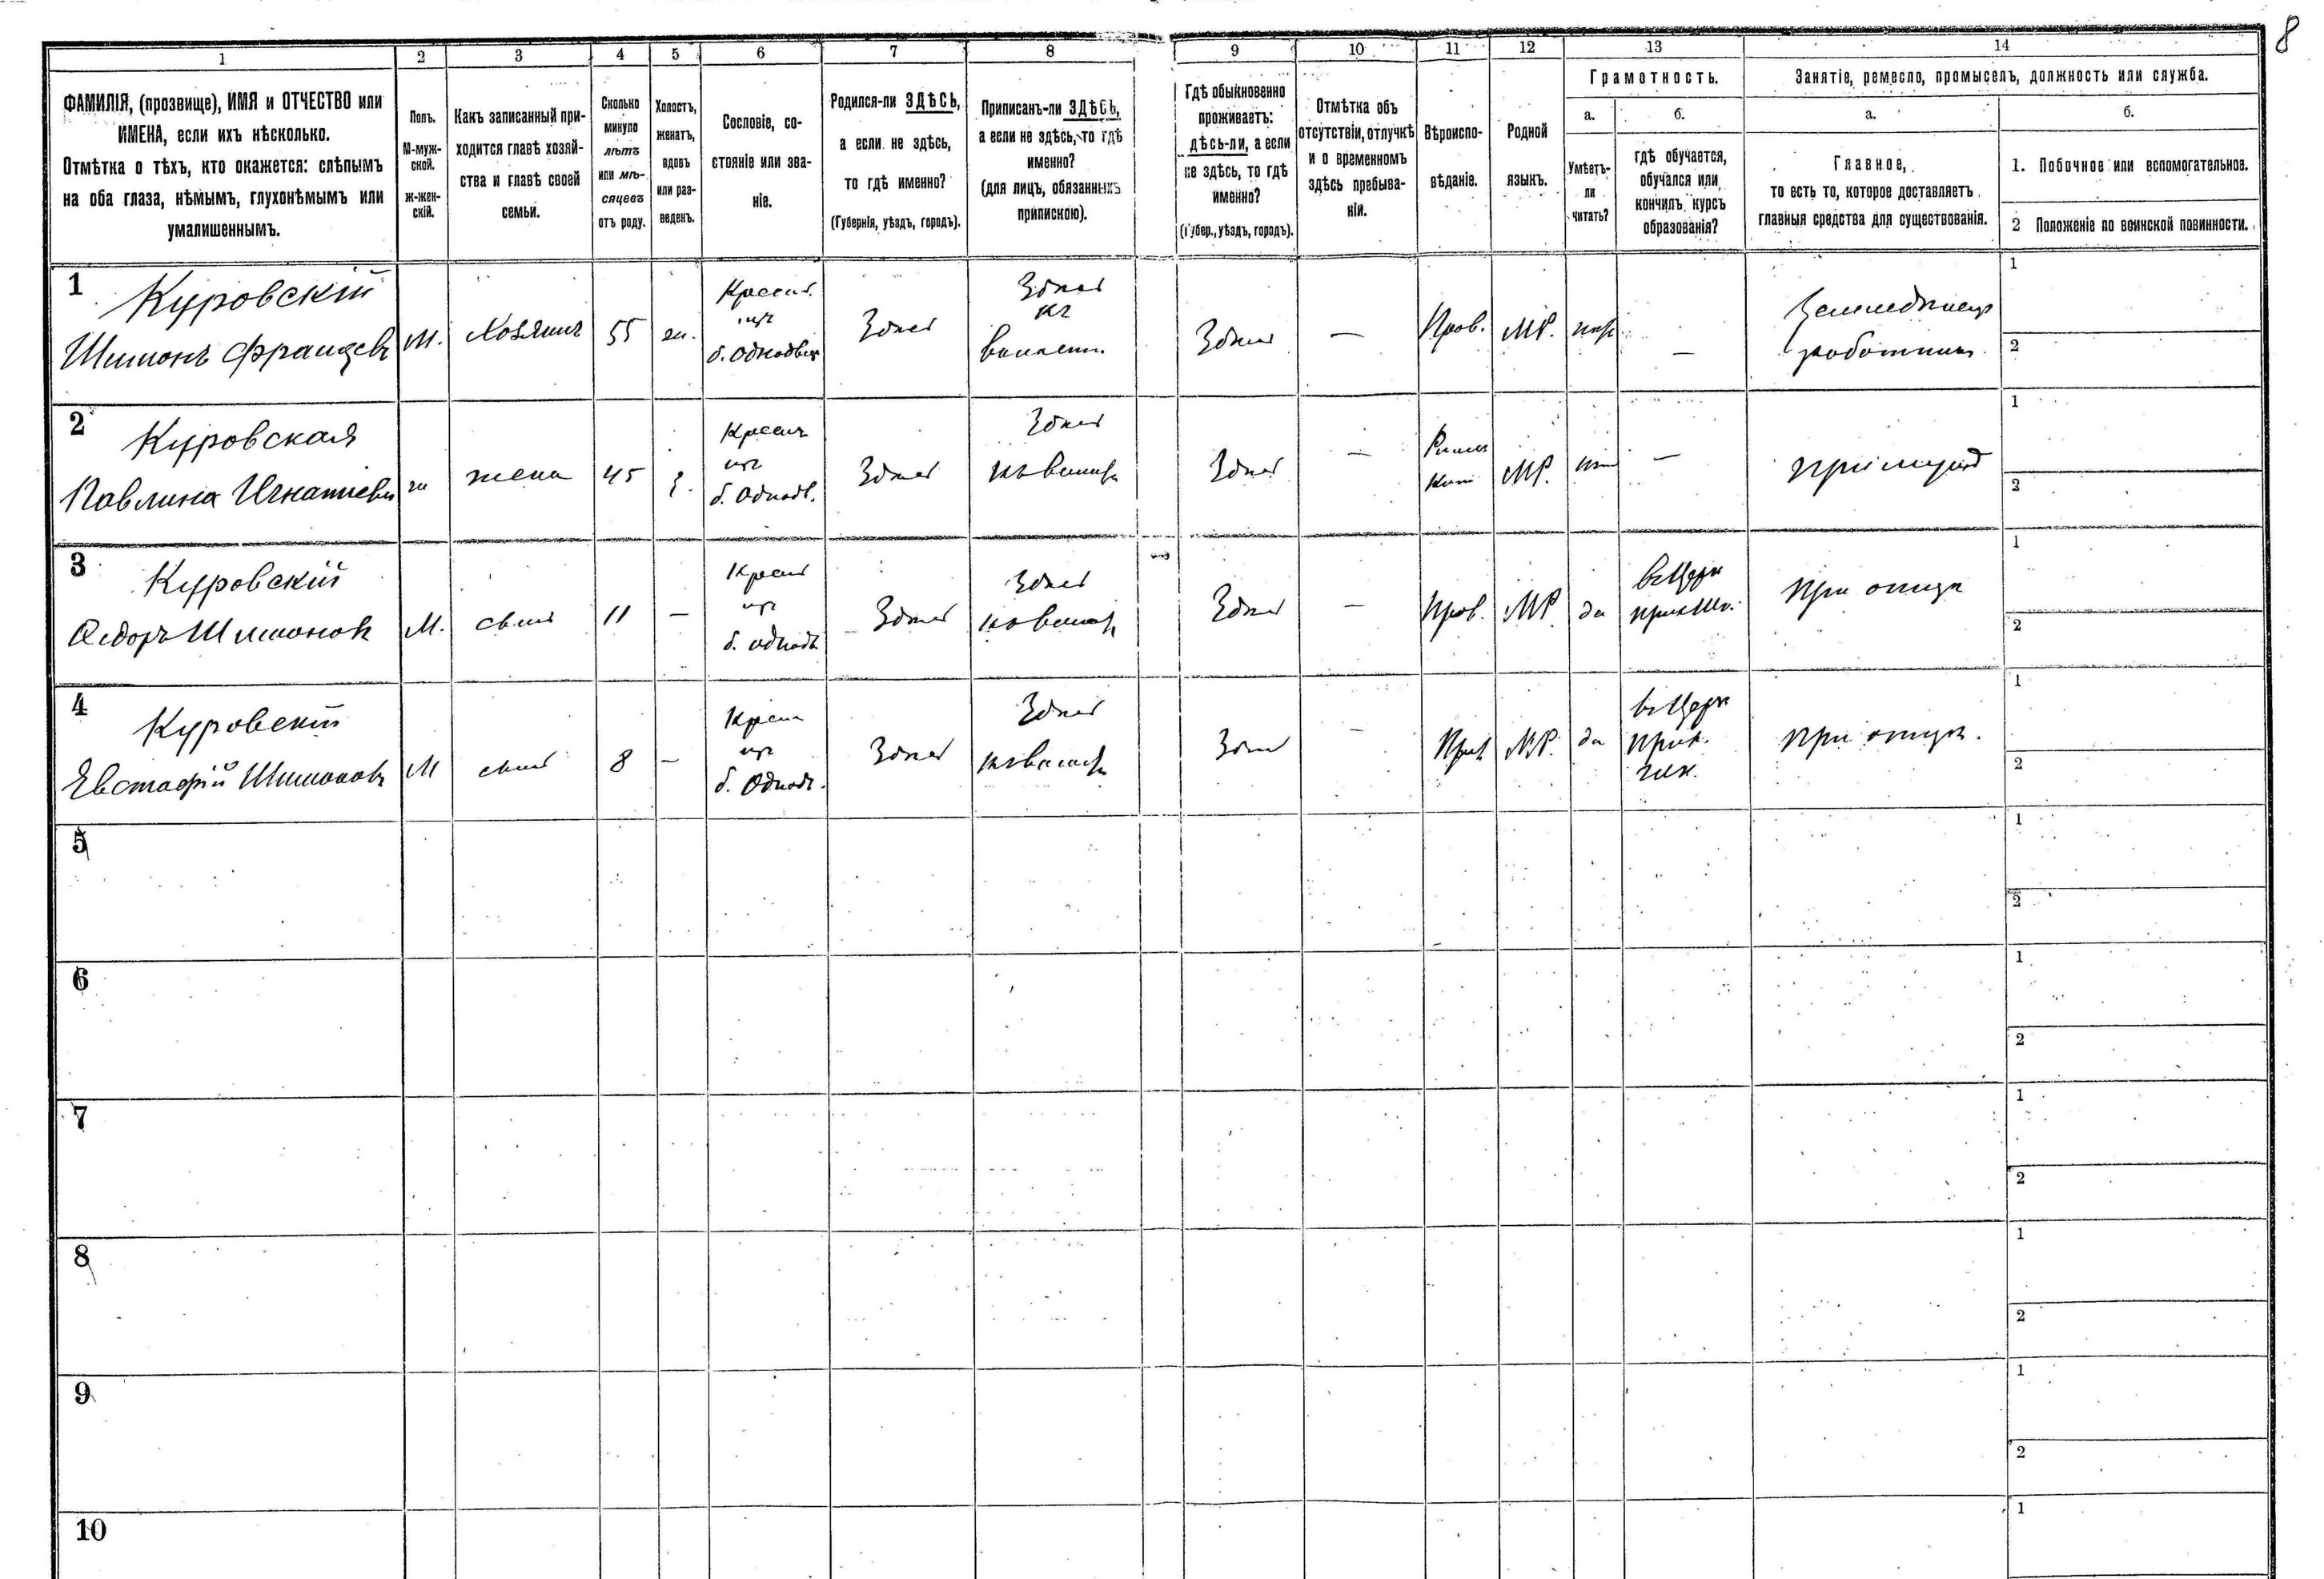 8
1 2 3 4 5 6 7 8 9 10 11 12 13 14
ФАМИЛІЯ, (прозвище), ИМЯ и ОТЧЕСТВО или
ИМЕНА, если ихъ нѣсколько.
Отмѣтка о тѣхъ, кто окажется: слѣпымъ
на оба глаза, нѣмымъ, глухонѣмымъ или
умалишеннымъ.
Полъ.
М-муж-
ской.
ж-жен-
скій.
Какъ записанный при-
ходится главѣ хозяй-
ства и главѣ своей
семьи.
Сколько
минуло
лѣтъ
или мѣ-
сяцевъ
отъ роду.
Холостъ,
женатъ,
вдовъ
или раз-
веденъ.
Сословіе, со-
стояніе или зва-
ніе.
Родился-ли ЗДѢСЬ,
а если не здѣсь,
то гдѣ именно?
(Губернія, уѣздъ, городъ).
Приписанъ-ли ЗДѢСЬ,
а если не здѣсь, то гдѣ
именно?
(для лицъ, обязанныхъ
припискою).
Гдѣ обыкновенно
проживаетъ:
дѣсь-ли, а если
не здѣсь, то гдѣ
именно?
(Губер., уѣздъ, городъ).
Отмѣтка объ
отсутствіи, отлучкѣ
и о временномъ
здѣсь пребыва-
ніи.
Вѣроиспо-
вѣданіе.
Родной
языкъ.
Грамотность.
а.
Умѣетъ-
ли
читать?
б.
гдѣ обучается,
обучался или
кончилъ курсъ
образованія?
Занятіе, ремесло, промыселъ, должность или служба.
а.
Главное,
то есть то, которое доставляетъ
главныя средства для существованія.
б.
1. Побочное или вспомогательное.
2 Положеніе по воинской повинности.
1
Куровскій
Шимонъ Францевъ
М.
Хозяинъ
55
б. Однодвор
Здѣсь
Здѣсь
къ
волости
Здѣсь
—
Прав.
МР.
—
работникъ
1
2
2
Куровская
Павлина Игнатіевна
жена
45
б. Однодв.
Здѣсь
Здѣсь
Здѣсь
—
МР.
—
при мужѣ
1
2
3
Куровскій
Ѳедоръ Шимоновъ
М.
сынъ
11
—
б. однодв
Здѣсь
Здѣсь
Здѣсь
—
Прав.
МР
да
въ Церк
прих Шк.
при отцѣ
1
2
4
Куровскій
Евстафій Шимоновъ
М
сынъ
8
—
б. Однодв.
Здѣсь
Здѣсь
Здѣсь
—
Прав
МР.
да
въ Церк
прих.
шк.
при отцѣ.
1
2
5
1
2
6
1
2
7
1
2
8
1
2
9
1
2
10
1